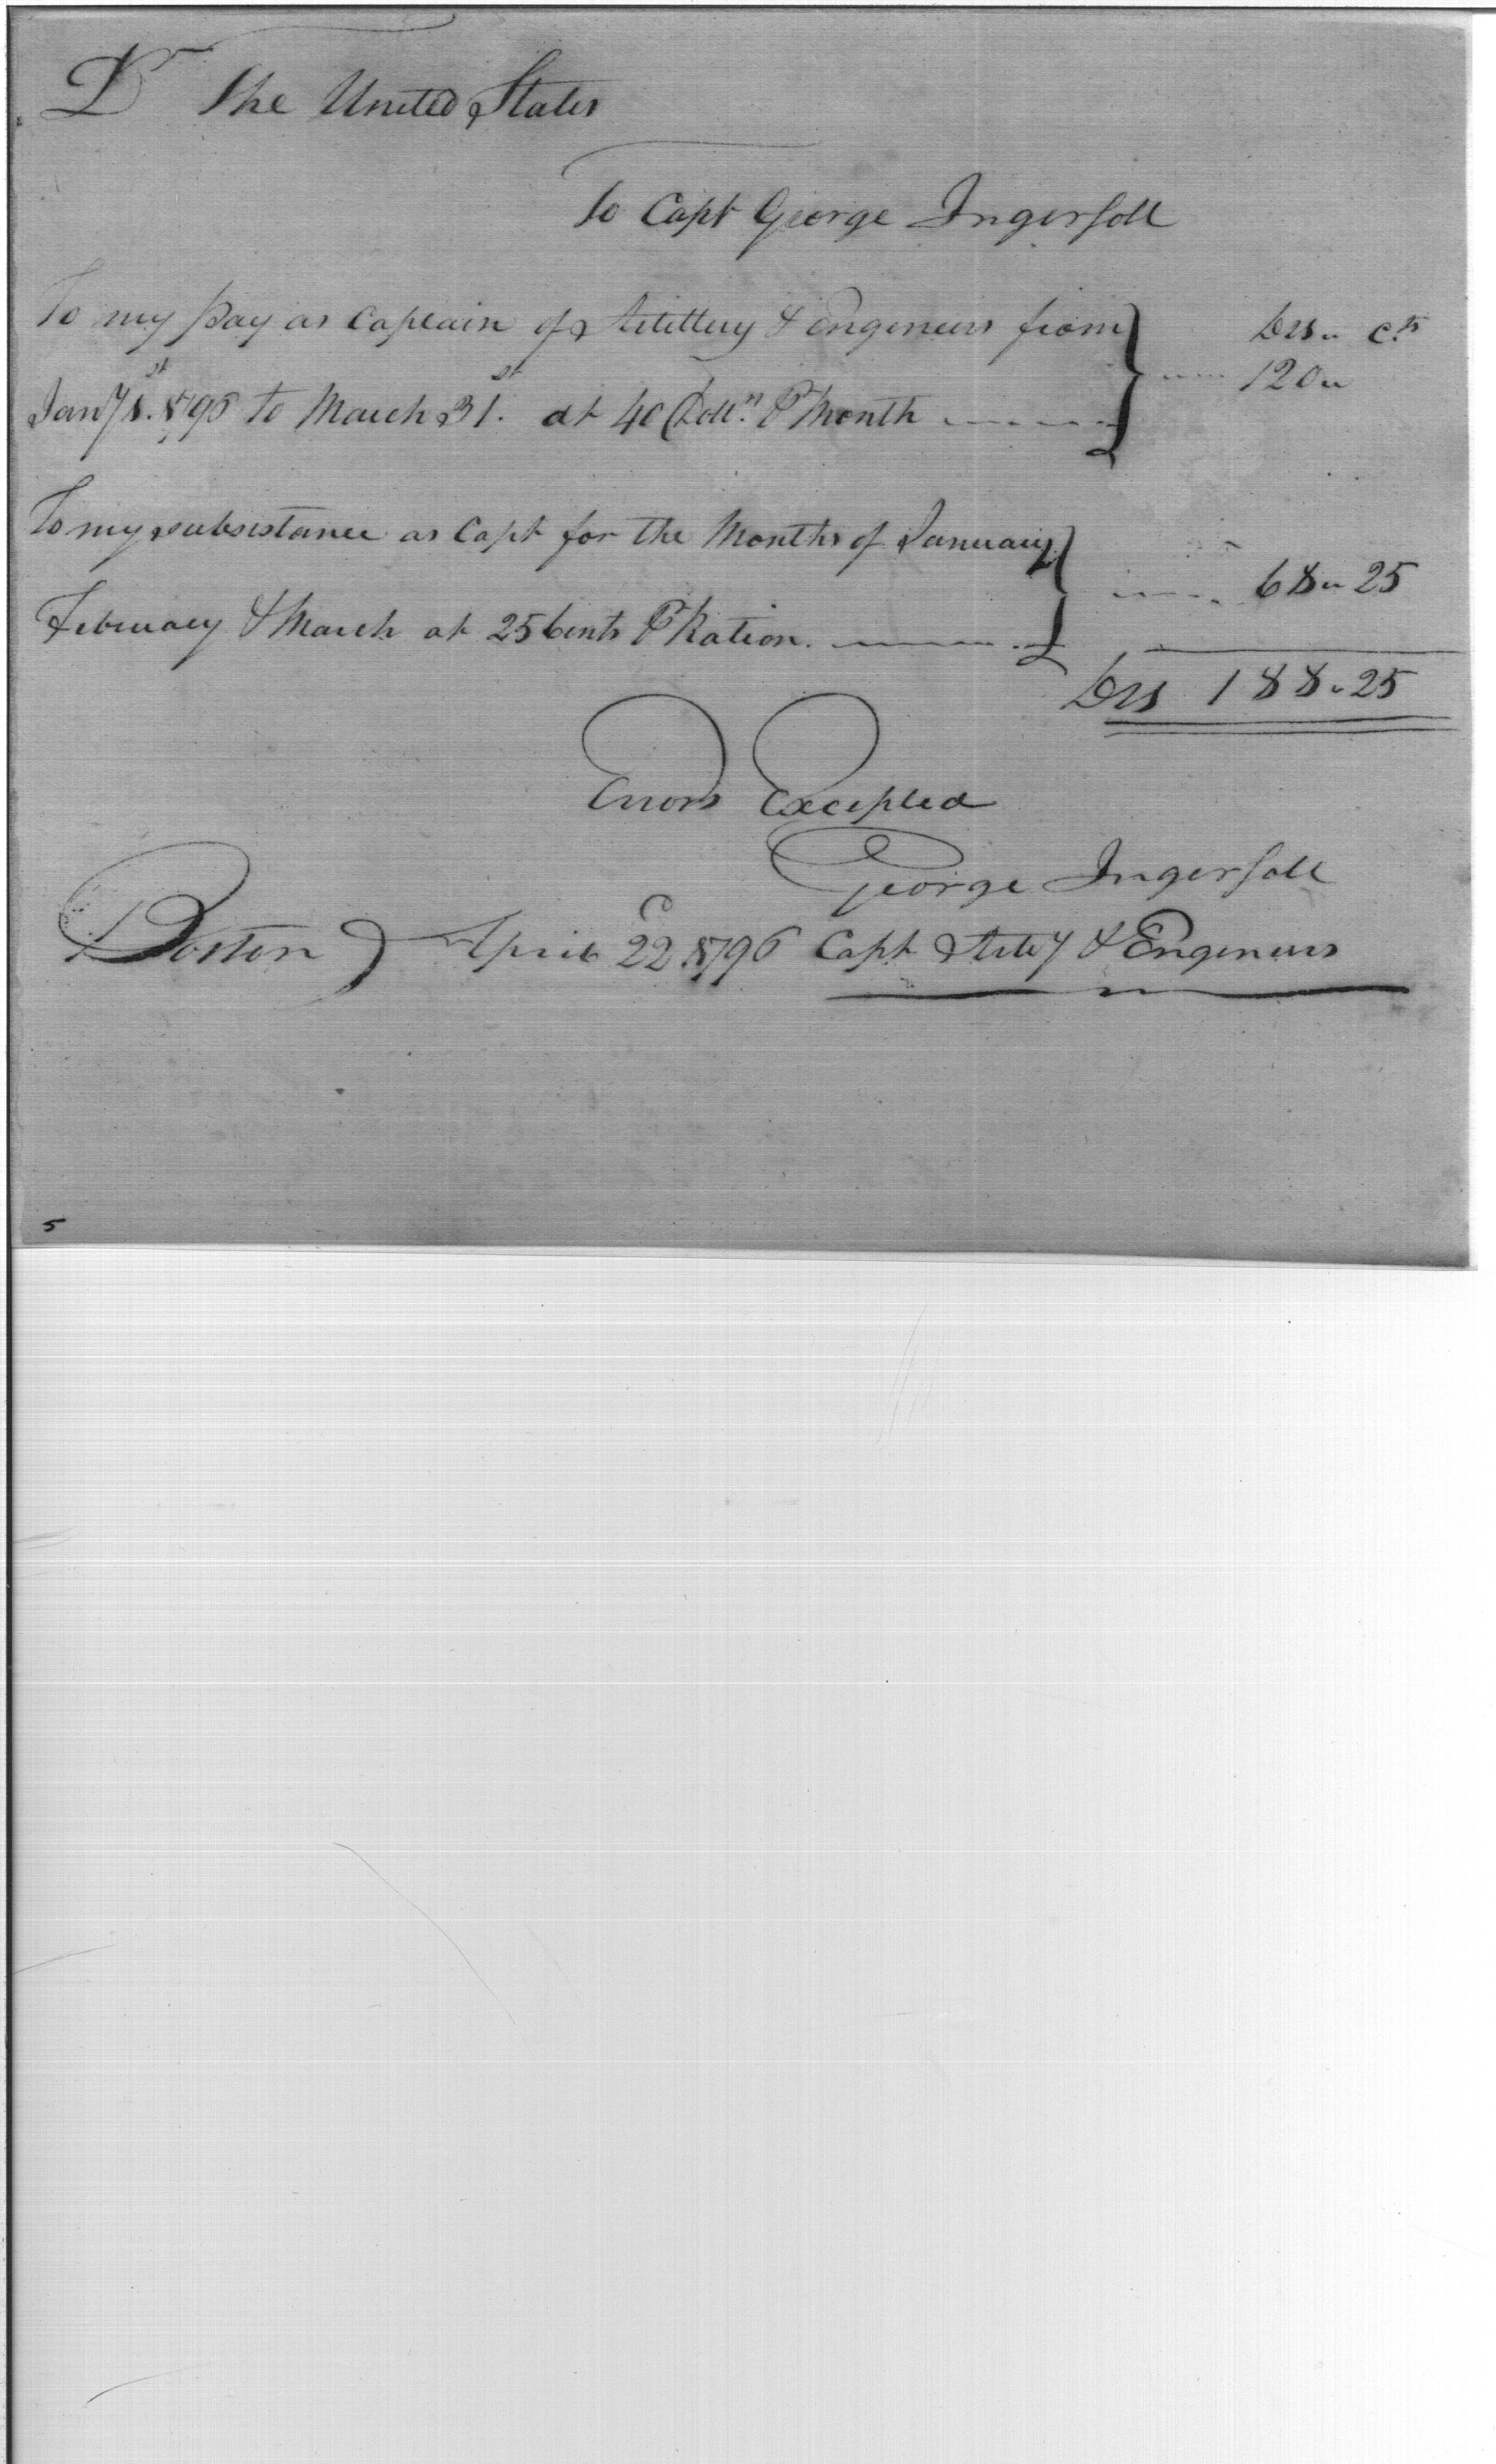 Dr The United States
To Capt George Ingersoll
To my pay as Captain of Artillery & Engineers from
Drs " Cts
Jany 1st. 1796 to March 31st. at 40 Dolls. Pr Month
120 "
To my subsistance as Capt for the Months of January
68 " 25
February & March at 25 Cents Pr Ration.
Drs 188 " 25
Errors Excepted
George Ingersoll
Boston April 22 1796 Capt Arty & Engineers
5